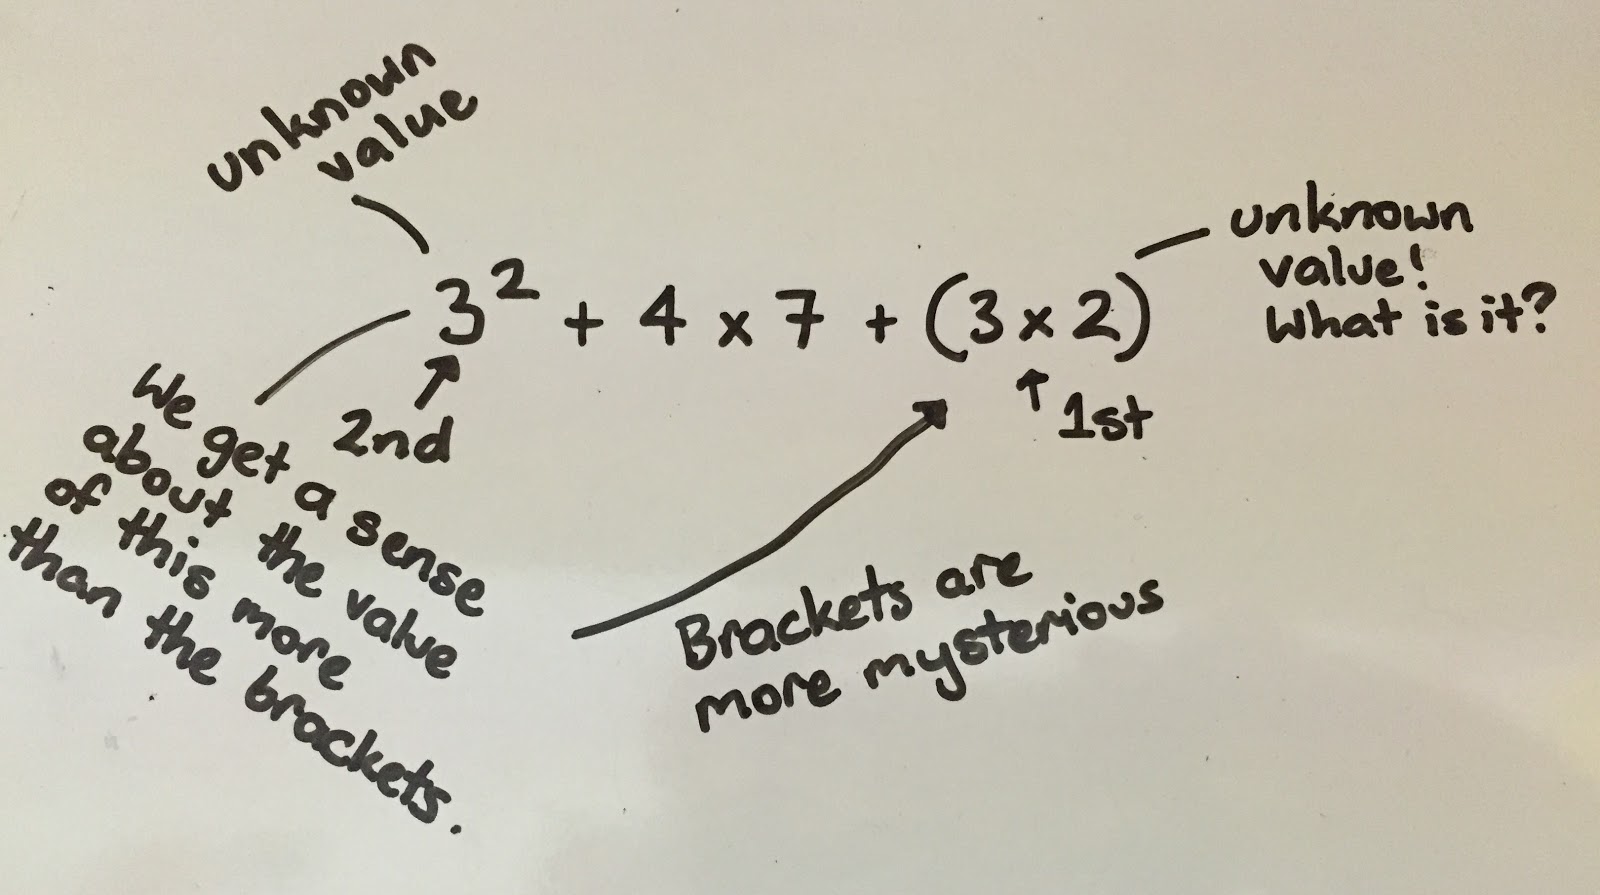 unknown
value
unknown
value!
What is it?
3² + 4 x 7 + (3 x 2)
2nd
1st
We get a sense
about the value
of this more
than the brackets.
Brackets are
more mysterious